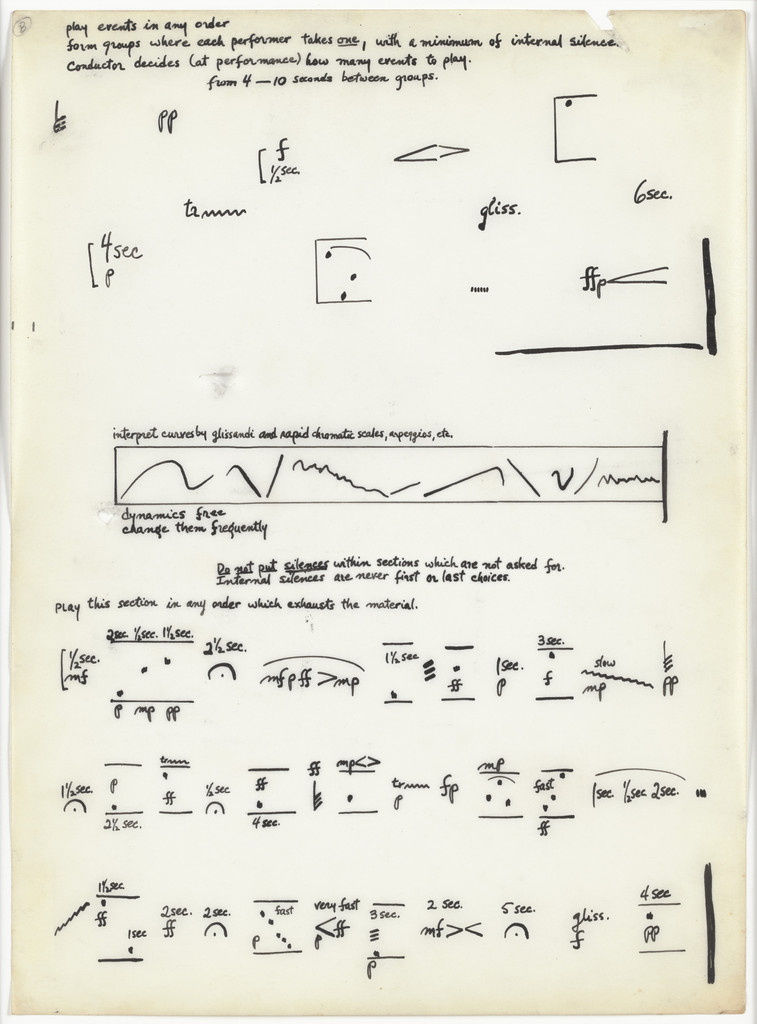 8
play events in any order
form groups where each performer takes one, with a minimum of internal silence.
conductor decides (at performance) how many events to play.
from 4 — 10 seconds between groups.
pp
f
1/2 sec.
tr
gliss.
6 sec.
4 sec
p
ffp
interpret curves by glissandi and rapid chromatic scales, arpeggios, etc.
dynamics free
change them frequently
Do not put silences within sections which are not asked for.
Internal silences are never first or last choices.
play this section in any order which exhausts the material.
2sec. 1/2sec. 1 1/2sec.
1/2 sec.
mf
p mp pp
2 1/2 sec.
mf p ff > mp
1 1/2 sec
ff
1 sec.
p
3 sec.
f
slow
mp
pp
1 1/2 sec.
p
2 1/2 sec.
tr
ff
1/2 sec
ff
4 sec.
ff
mp<>
tr
p
fp
mp
fast
ff
1 sec. 1/2 sec 2 sec.
1 1/2 sec
ff
1 sec
2 sec.
ff
2 sec.
fast
p
very fast
p<ff
3 sec.
p
2 sec.
mf><
5 sec.
gliss.
f
4 sec
pp